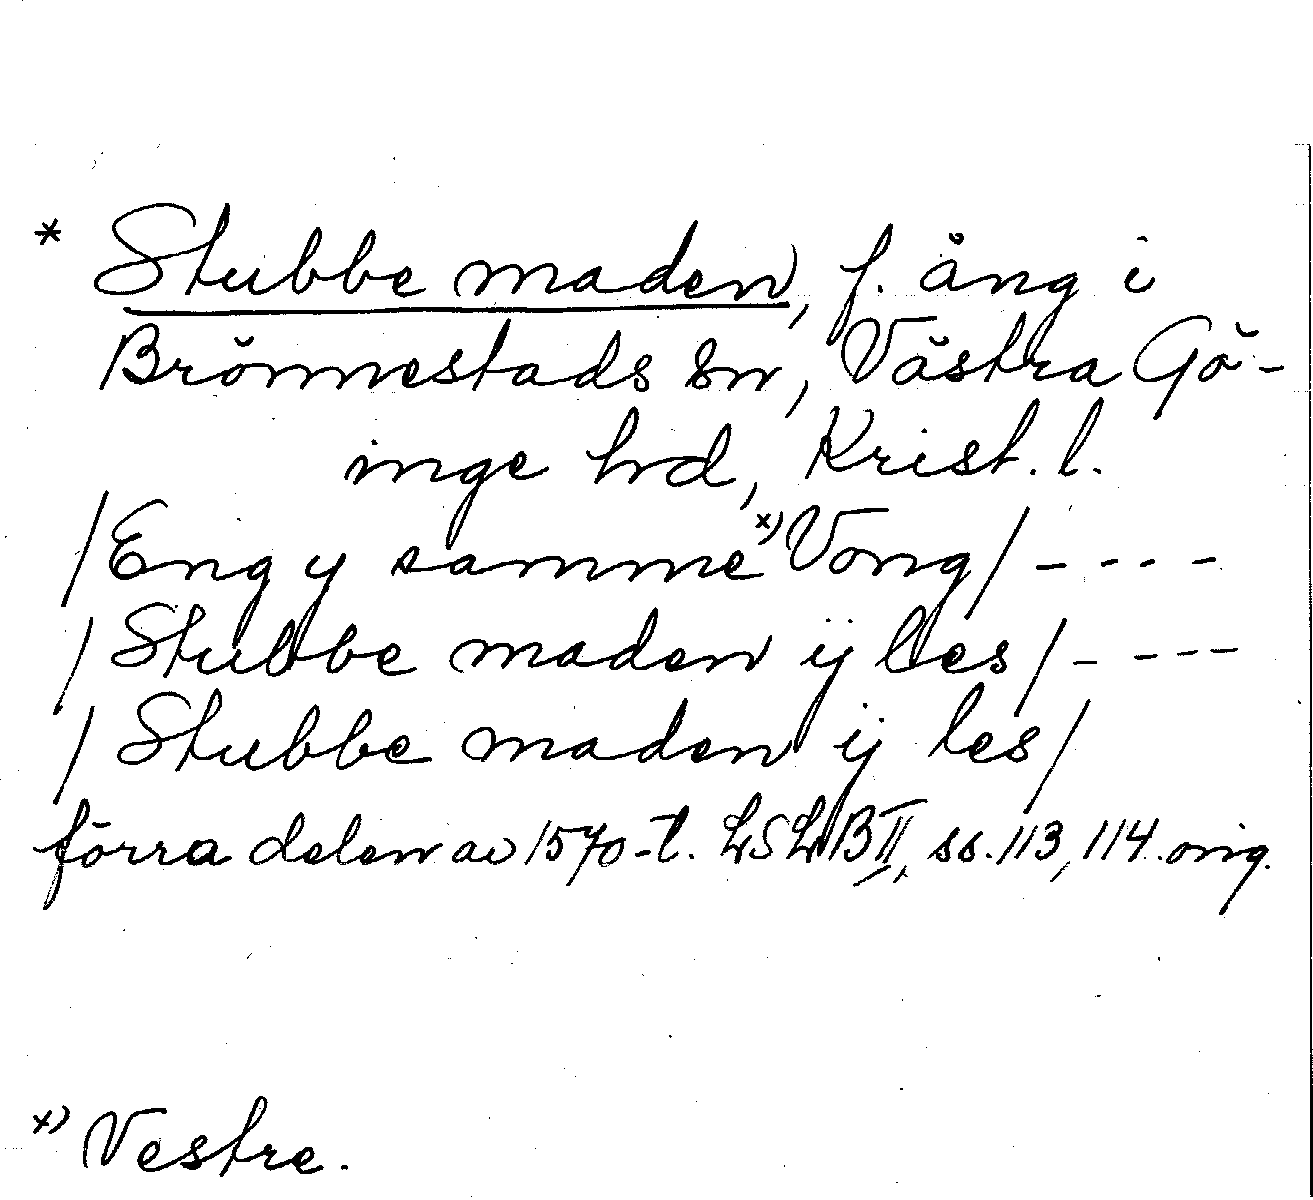 * Stubbe maden, f. äng i
Brönnestads sn, Västra Gö-
inge hd, Krist. l.
/Eng y samme x) Vong/ ----
/Stubbe maden ÿ les/ ----
/Stubbe maden ÿ les/
förra delen av 1570-t. LSLB II, ss. 113, 114. orig.
x) Vestre.